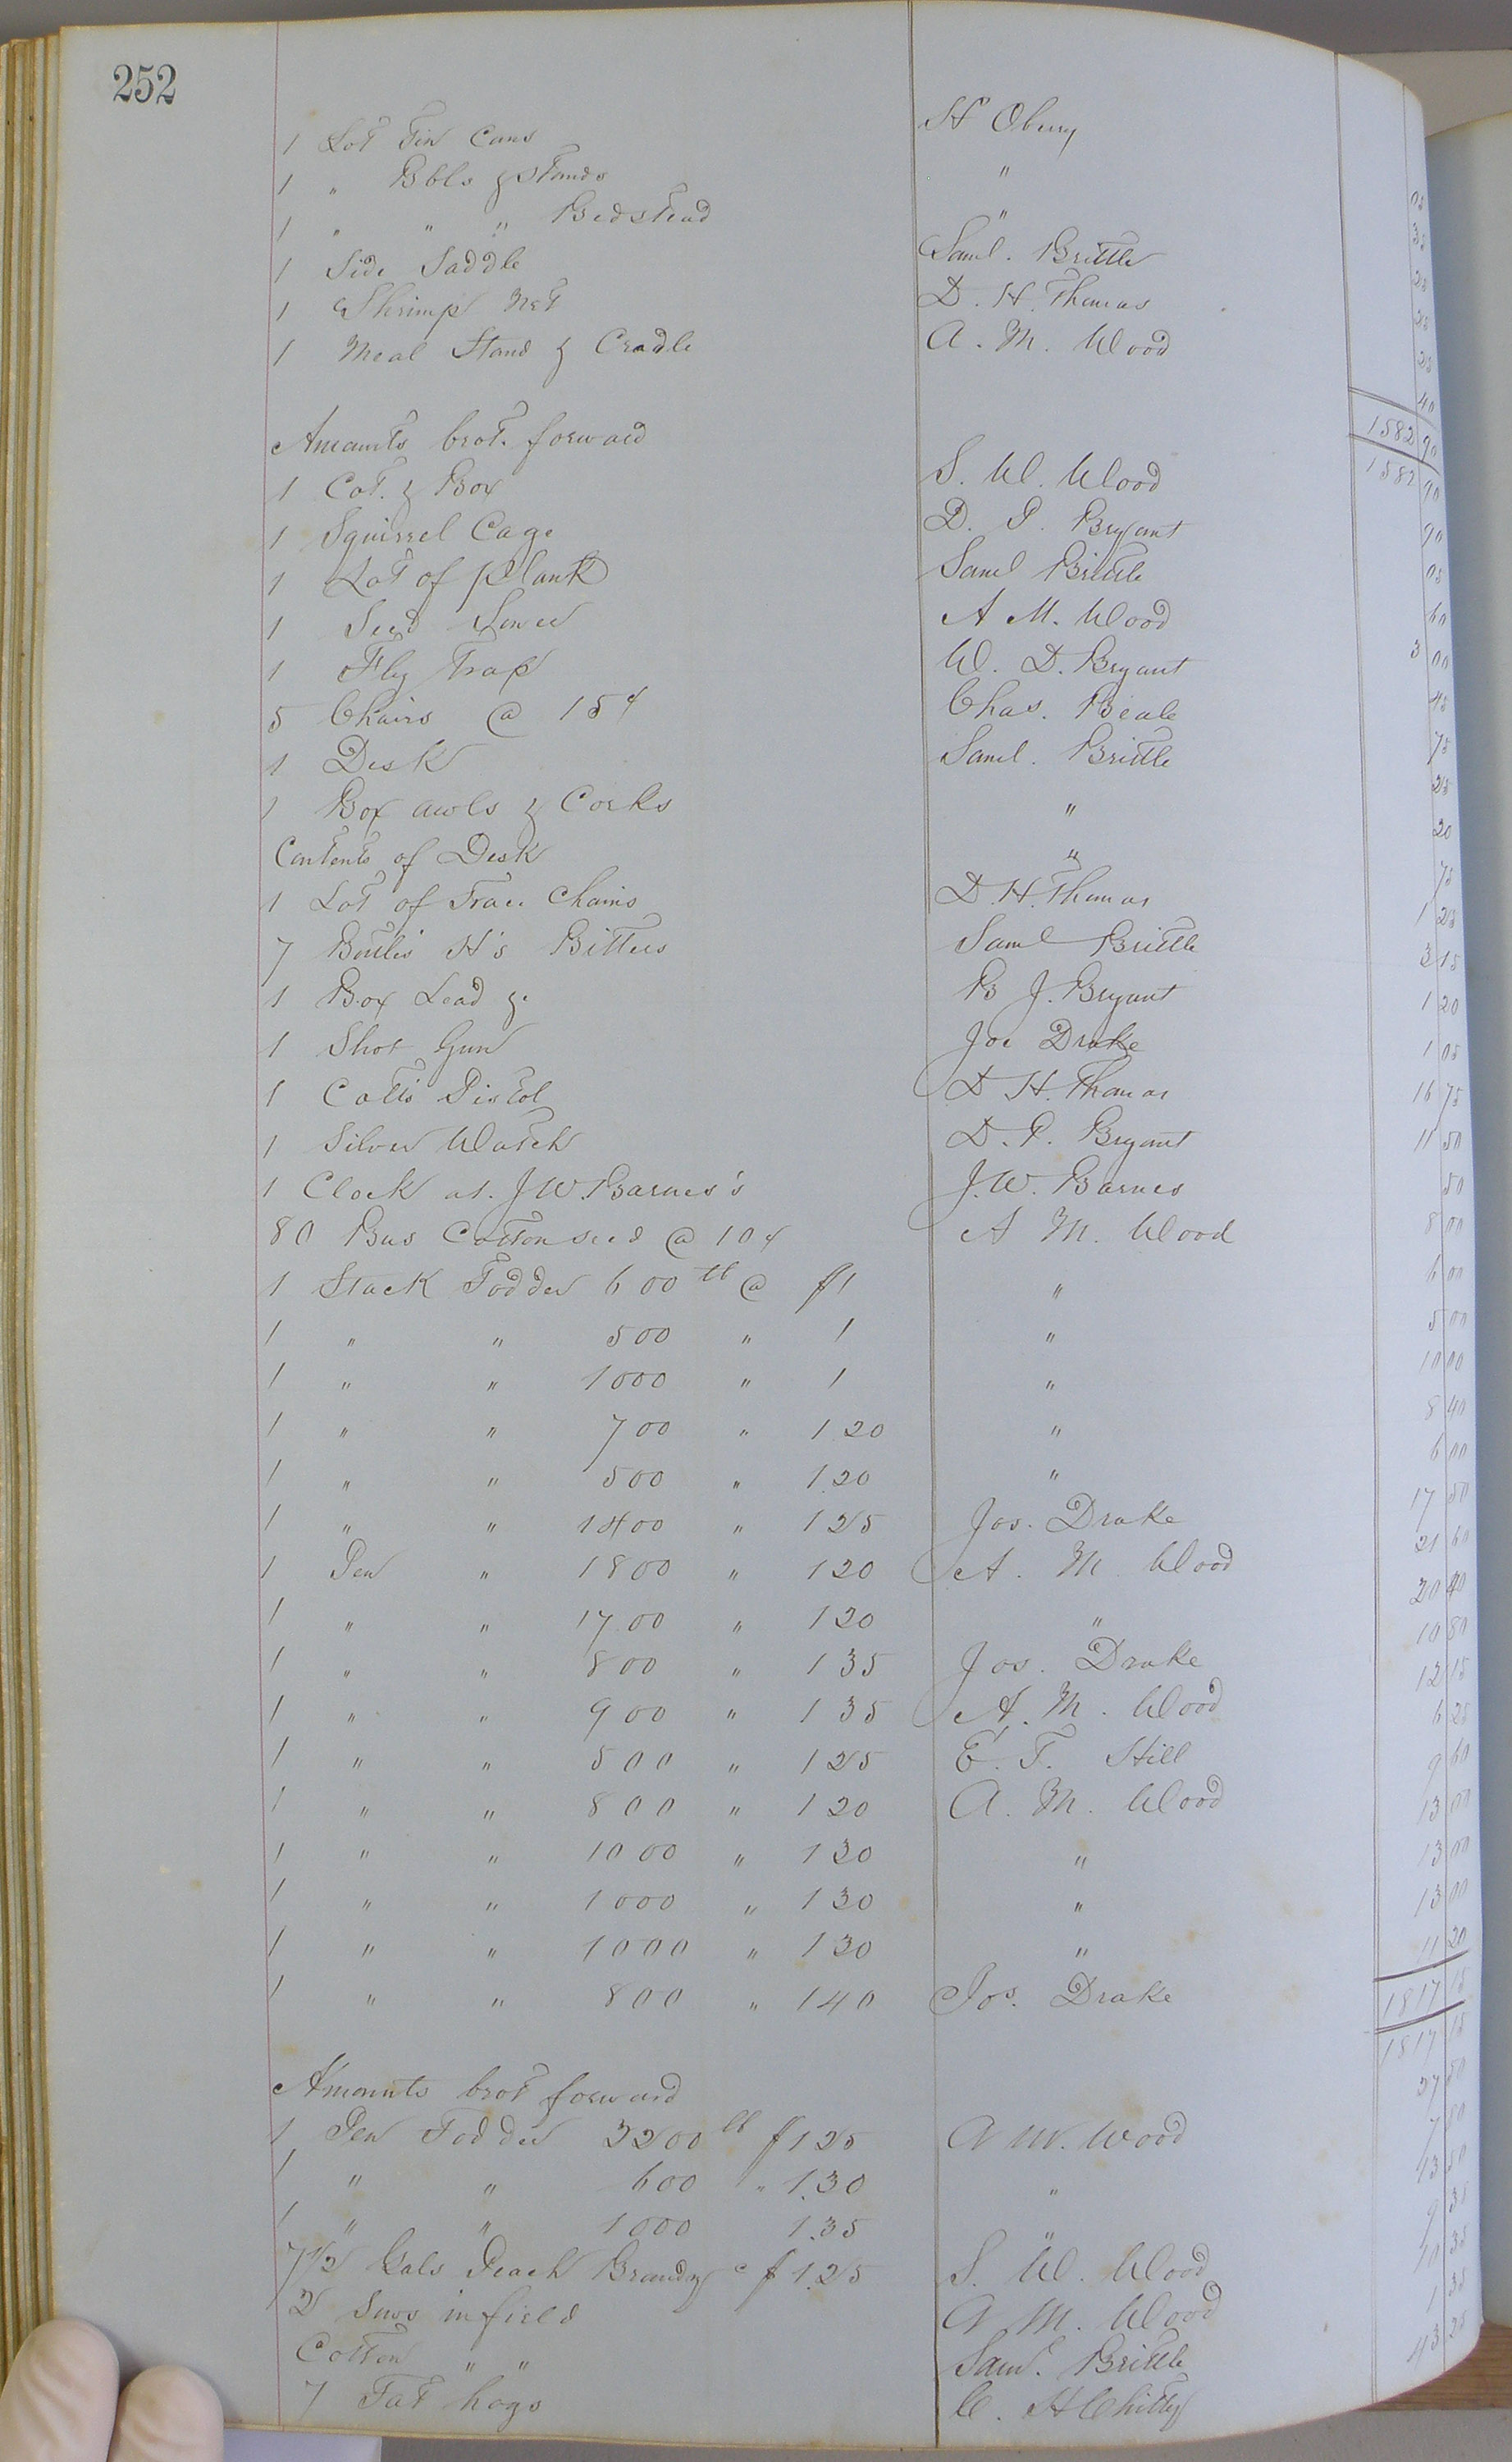 252
1 Lot Tin Cans H Obery 05
1 " Bbls & Stands " 35
1 " " " Bedstead " 25
1 Side Saddle Saml. Brittle 25
1 Shrimp Net D. H. Thomas 25
1 Meal Stand & Cradle A. M. Wood 40
1582 90
Amounts brot. forward 1582 90
1 Cot. & Box S. W. Wood 90
1 Squirrel Cage D. P. Bryant 05
1 Lot of plank Saml Brittle 60
1 Seed Sower A M. Wood 3 00
1 Fly Trap W. D. Bryant 45
5 Chairs @ 15¢ Chas. Beale 75
1 Desk Saml. Brittle 25
1 Box awls & Corks " 20
Contents of Desk " 75
1 Lot of Trace Chains D. H. Thomas 1 25
7 Bottles H's Bitters Saml Brittle 3 15
1 Box Lead &. B J. Bryant 1 20
1 Shot Gun Joe Drake 1 05
1 Colts Pistol D H. Thomas 16 75
1 Silver Watch D. P. Bryant 11 50
1 Clock at. J W. Barnes's J. W. Barnes 50
80 Bus Cotton seed @ 10¢ A M. Wood 8 00
1 Stack Fodder 600 lb @ $1 " 6 00
1 " " 500 " 1 " 5 00
1 " " 1000 " 1 " 10 00
1 " " 700 " 1 20 " 8 40
1 " " 500 " 1.20 " 6 00
1 " " 1400 " 1 25 Jos. Drake 17 50
1 Pen " 1800 " 1 20 A. M Wood 21 60
1 " " 1700 " 1 20 " 20 40
1 " " 800 " 1 35 Jos. Drake 10 80
1 " " 900 " 1 35 A. M. Wood 12 15
1 " " 500 " 1 25 E. T. Hill 6 25
1 " " 800 " 1 20 A. M. Wood 9 60
1 " " 1000 " 1 30 " 13 00
1 " " 1000 " 1 30 " 13 00
1 " " 1000 " 1 30 " 13 00
1 " " 800 " 1 40 Jos. Drake 11 20
1817 15
Amounts brot forward 1817 15
1 Pen Fodder 3200 lb $1 25 A M. Wood 37 50
1 " " 600 " 1.30 " 7 80
1 " " 1000 1.35 " 13 50
7 1/2 Gals Peach Brandy @ $1.25 S. W. Wood 9 35
2 Sows in field A M. Wood 10 35
Cotton " " Saml. Brittle 1 35
7 Fat hogs C. H Chitty 43 25